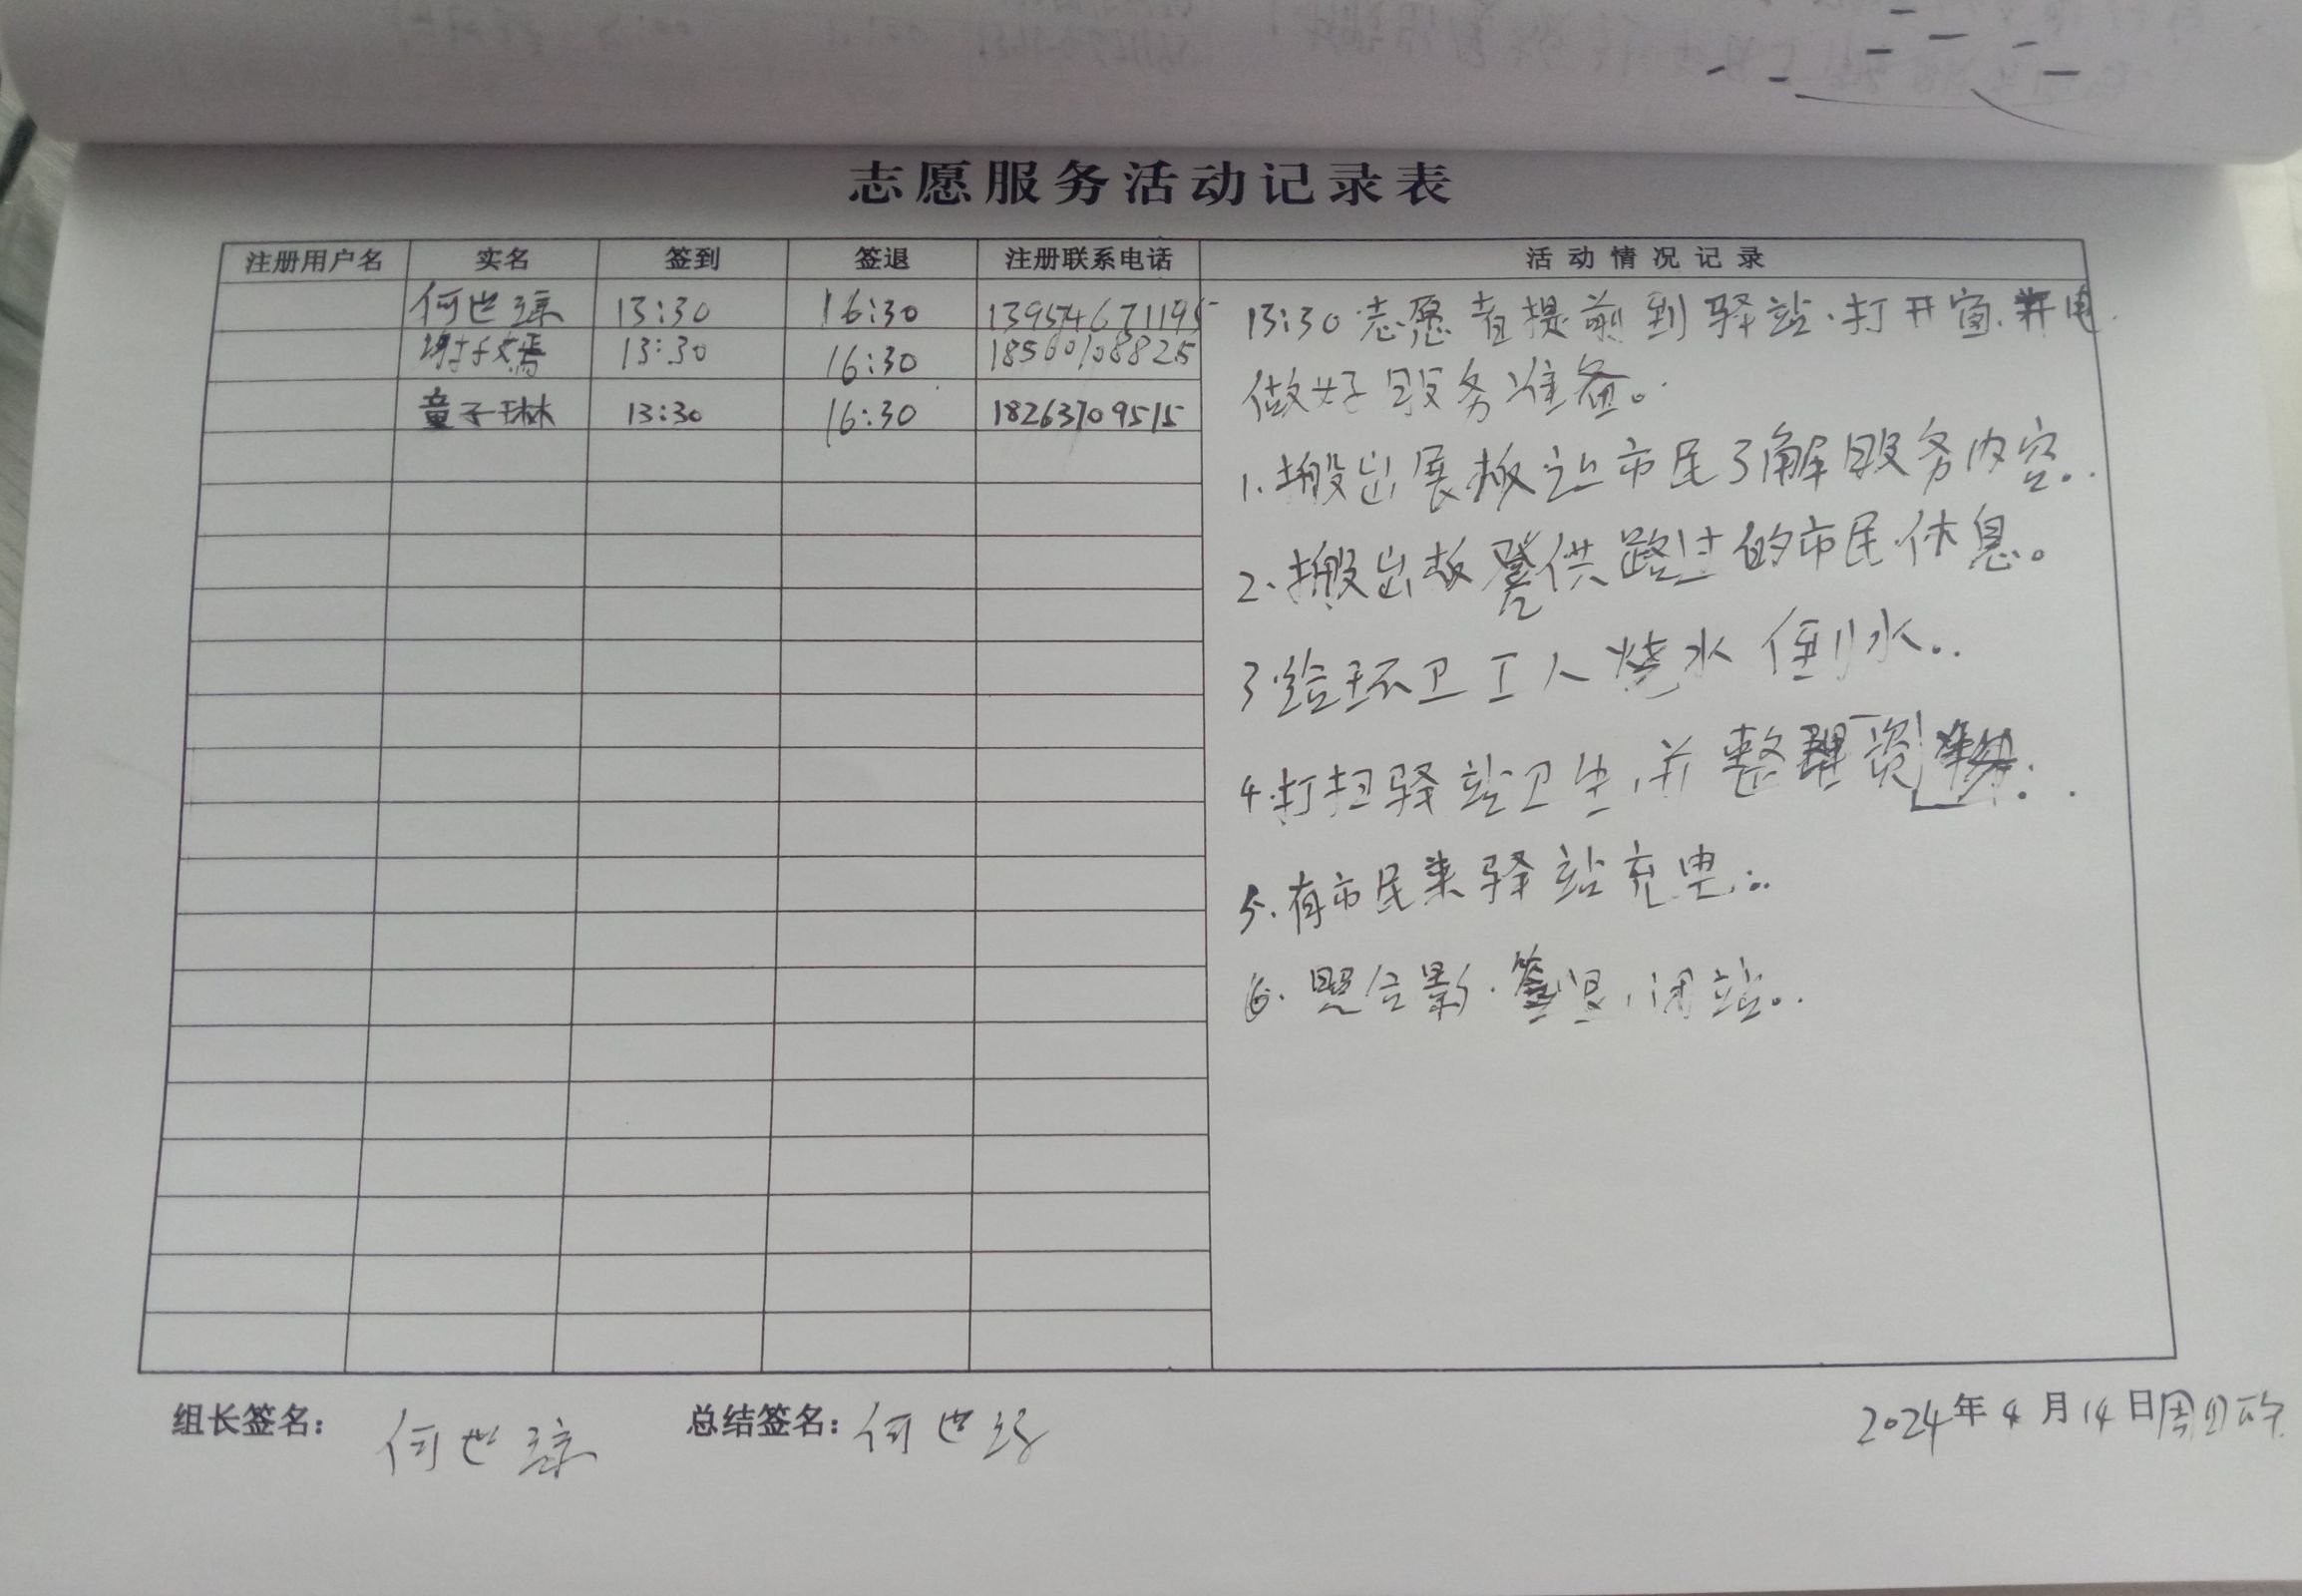 志愿服务活动记录表
注册用户名 实名 签到 签退 注册联系电话 活动情况记录
何世琼 13:30 16:30
13:30 16:30 18560108825
童子琳 13:30 16:30 18263709515
13:30志愿者提前到驿站.打开窗.开电.
做好服务准备。
1.搬出展板让市民了解服务内容.
2.搬出板凳供路过的市民休息。
3.给环卫工人烧水倒水.
4.打扫驿站卫生,并整理资料.
5.有市民来驿站充电.
6.照合影.签退,闭站.
组长签名: 何世琼 总结签名: 何世琼 2024年4月14日周日下午